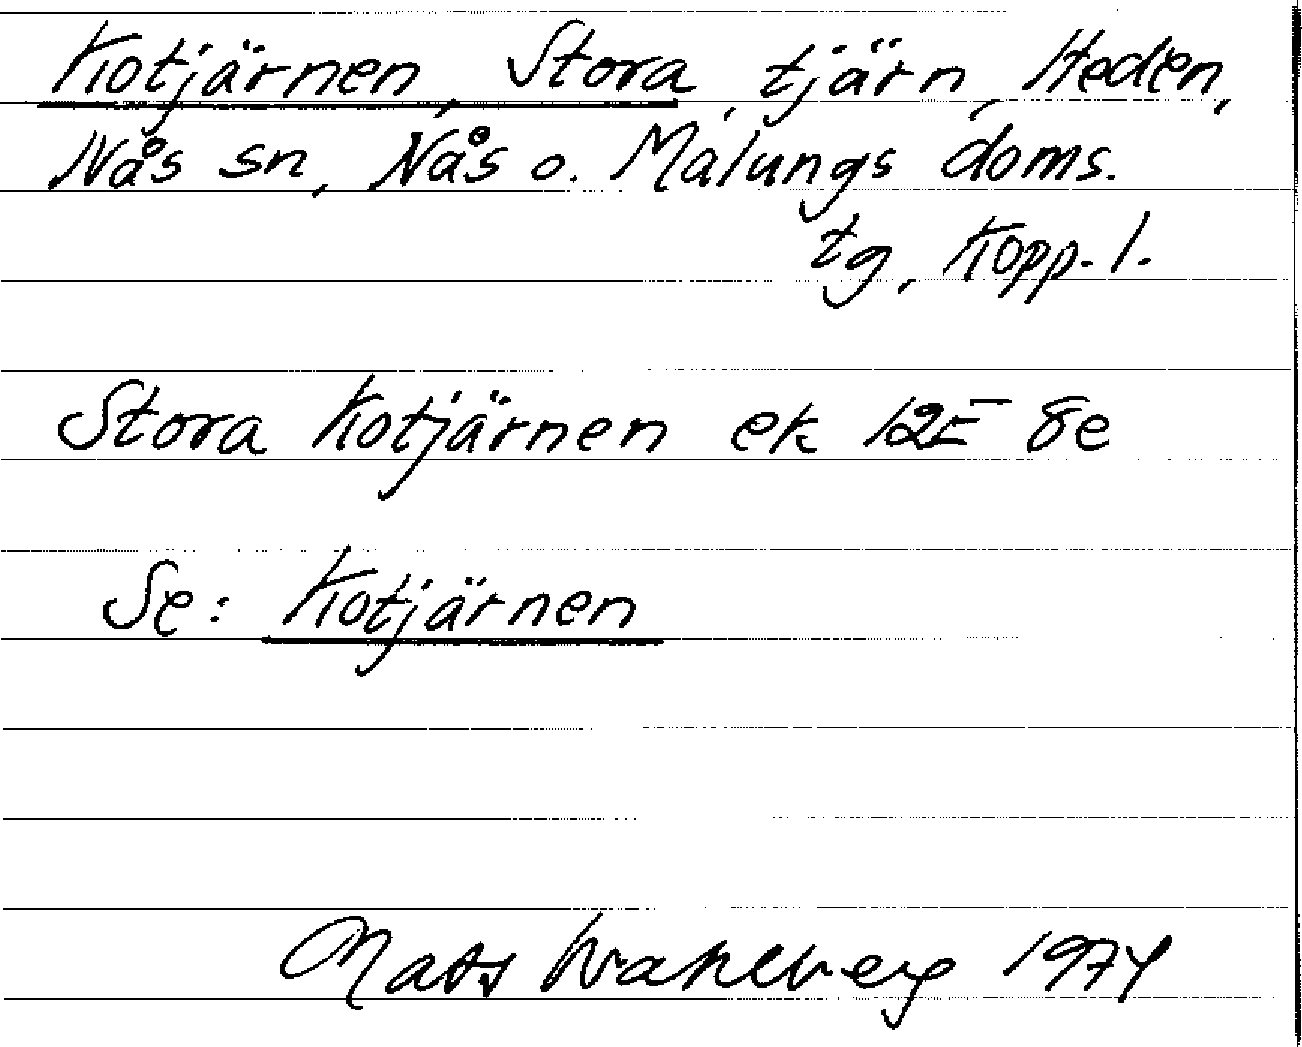 Kotjärnen, Stora, tjärn, Heden,
Nås sn, Nås o. Malungs doms.
tg, Kopp. l.
Stora Kotjärnen ek 12E 8e
Se: Kotjärnen
Mats Wahlberg 1974